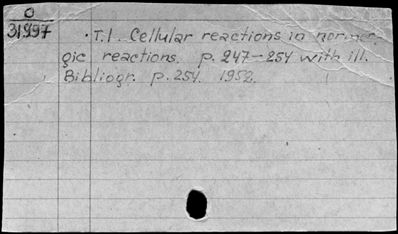 O
31997
·T.I. Cellular reactions in normer-
gic reactions. p. 247-254 with ill.
Bibliogr. p. 254. 1952.